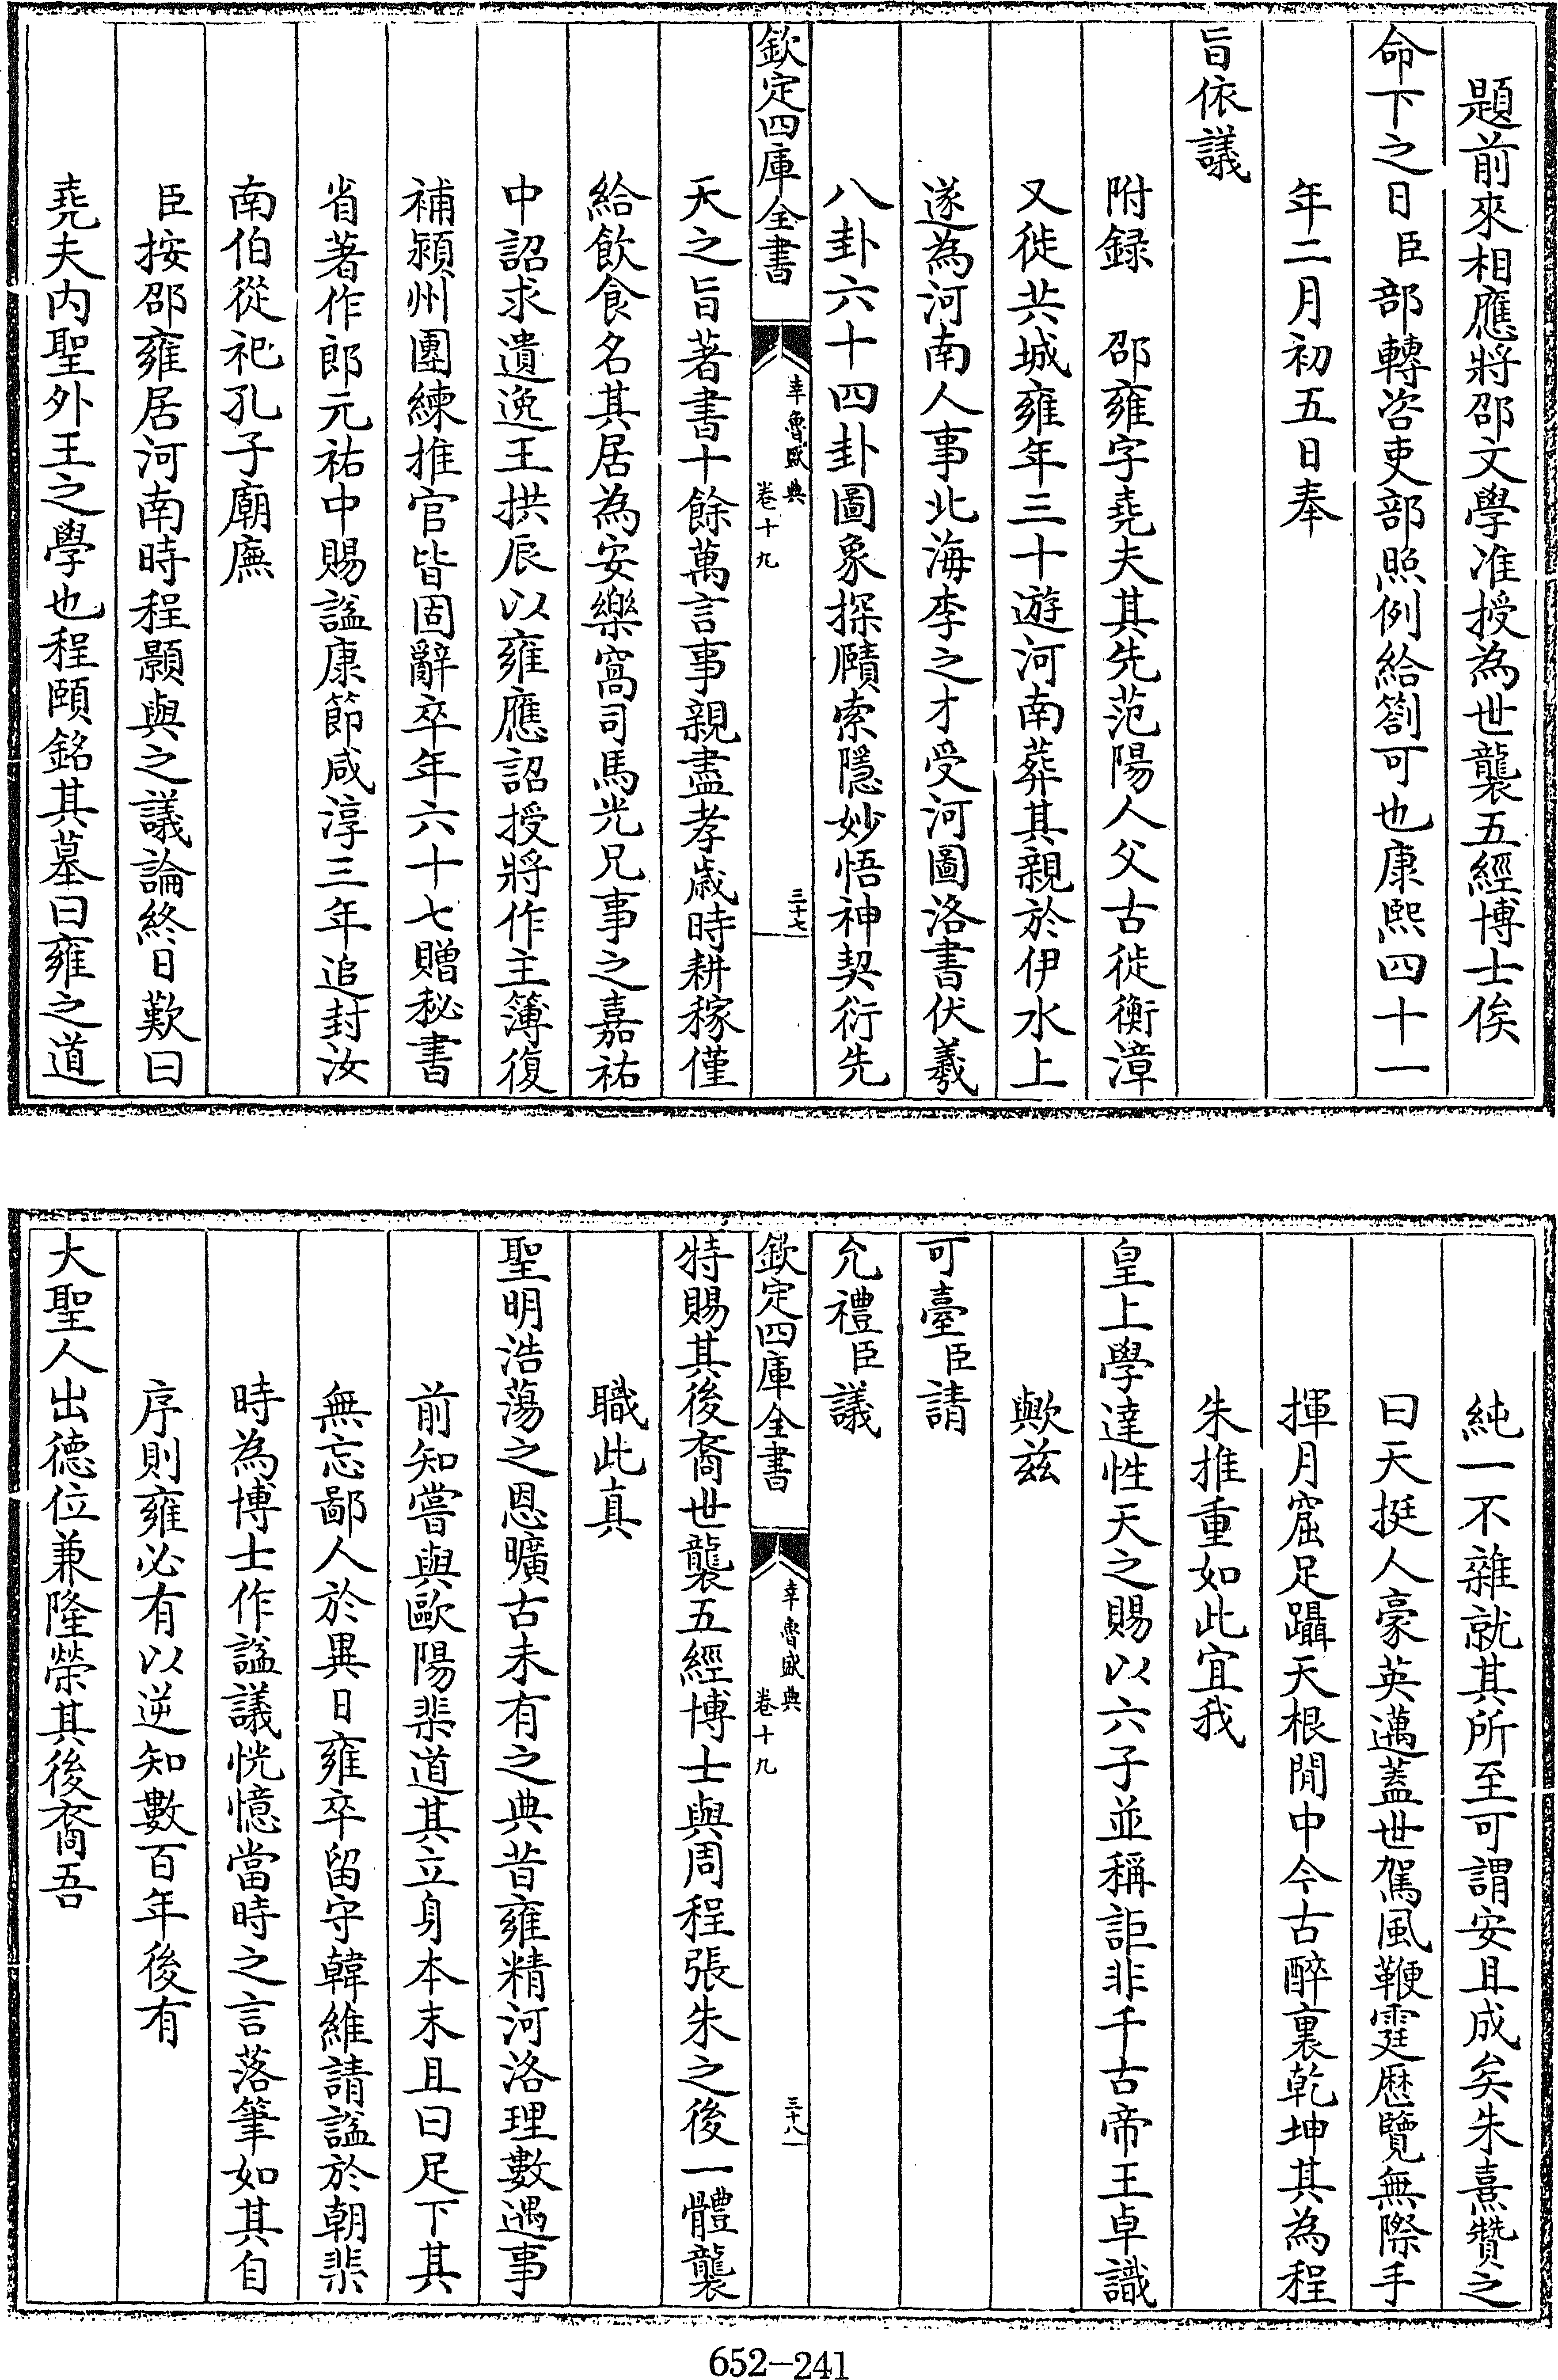 題前來相應將邵文學准授為世襲五經博士俟
命下之日臣部轉咨吏部照例給劄可也康熙四十一
年二月初五日奉
旨依議
附録　邵雍字堯夫其先范陽人父古徙衡漳
又徙共城雍年三十遊河南葬其親於伊水上
遂為河南人事北海李之才受河圖洛書伏羲
八卦六十四卦圖象探賾索隱妙悟神契衍先
欽定四庫全書
幸魯盛典
卷十九
三十七
天之旨著書十餘萬言事親盡孝歲時耕稼僅
給飲食名其居為安樂窩司馬光兄事之嘉祐
中詔求遺逸王拱辰以雍應詔授將作主簿復
補潁州團練推官皆固辭卒年六十七贈秘書
省著作郎元祐中賜謚康節咸淳三年追封汝
南伯從祀孔子廟廡
臣按邵雍居河南時程顥與之議論終日歎曰
堯夫内聖外王之學也程頤銘其墓曰雍之道
純一不雜就其所至可謂安且成矣朱熹贊之
曰天挺人豪英邁蓋世駕風鞭霆歴覽無際手
揮月窟足躡天根閒中今古醉裏乾坤其為程
朱推重如此宜我
皇上學達性天之賜以六子並稱詎非千古帝王卓識
歟兹
可臺臣請
允禮臣議
欽定四庫全書
幸魯盛典
卷十九
三十八
特賜其後裔世襲五經博士與周程張朱之後一體襲
職此真
聖明浩蕩之恩曠古未有之典昔雍精河洛理數遇事
前知嘗與歐陽棐道其立身本末且曰足下其
無忘鄙人於異日雍卒留守韓維請謚於朝棐
時為博士作謚議恍憶當時之言落筆如其自
序則雍必有以逆知數百年後有
大聖人出德位兼隆榮其後裔吾
652-241